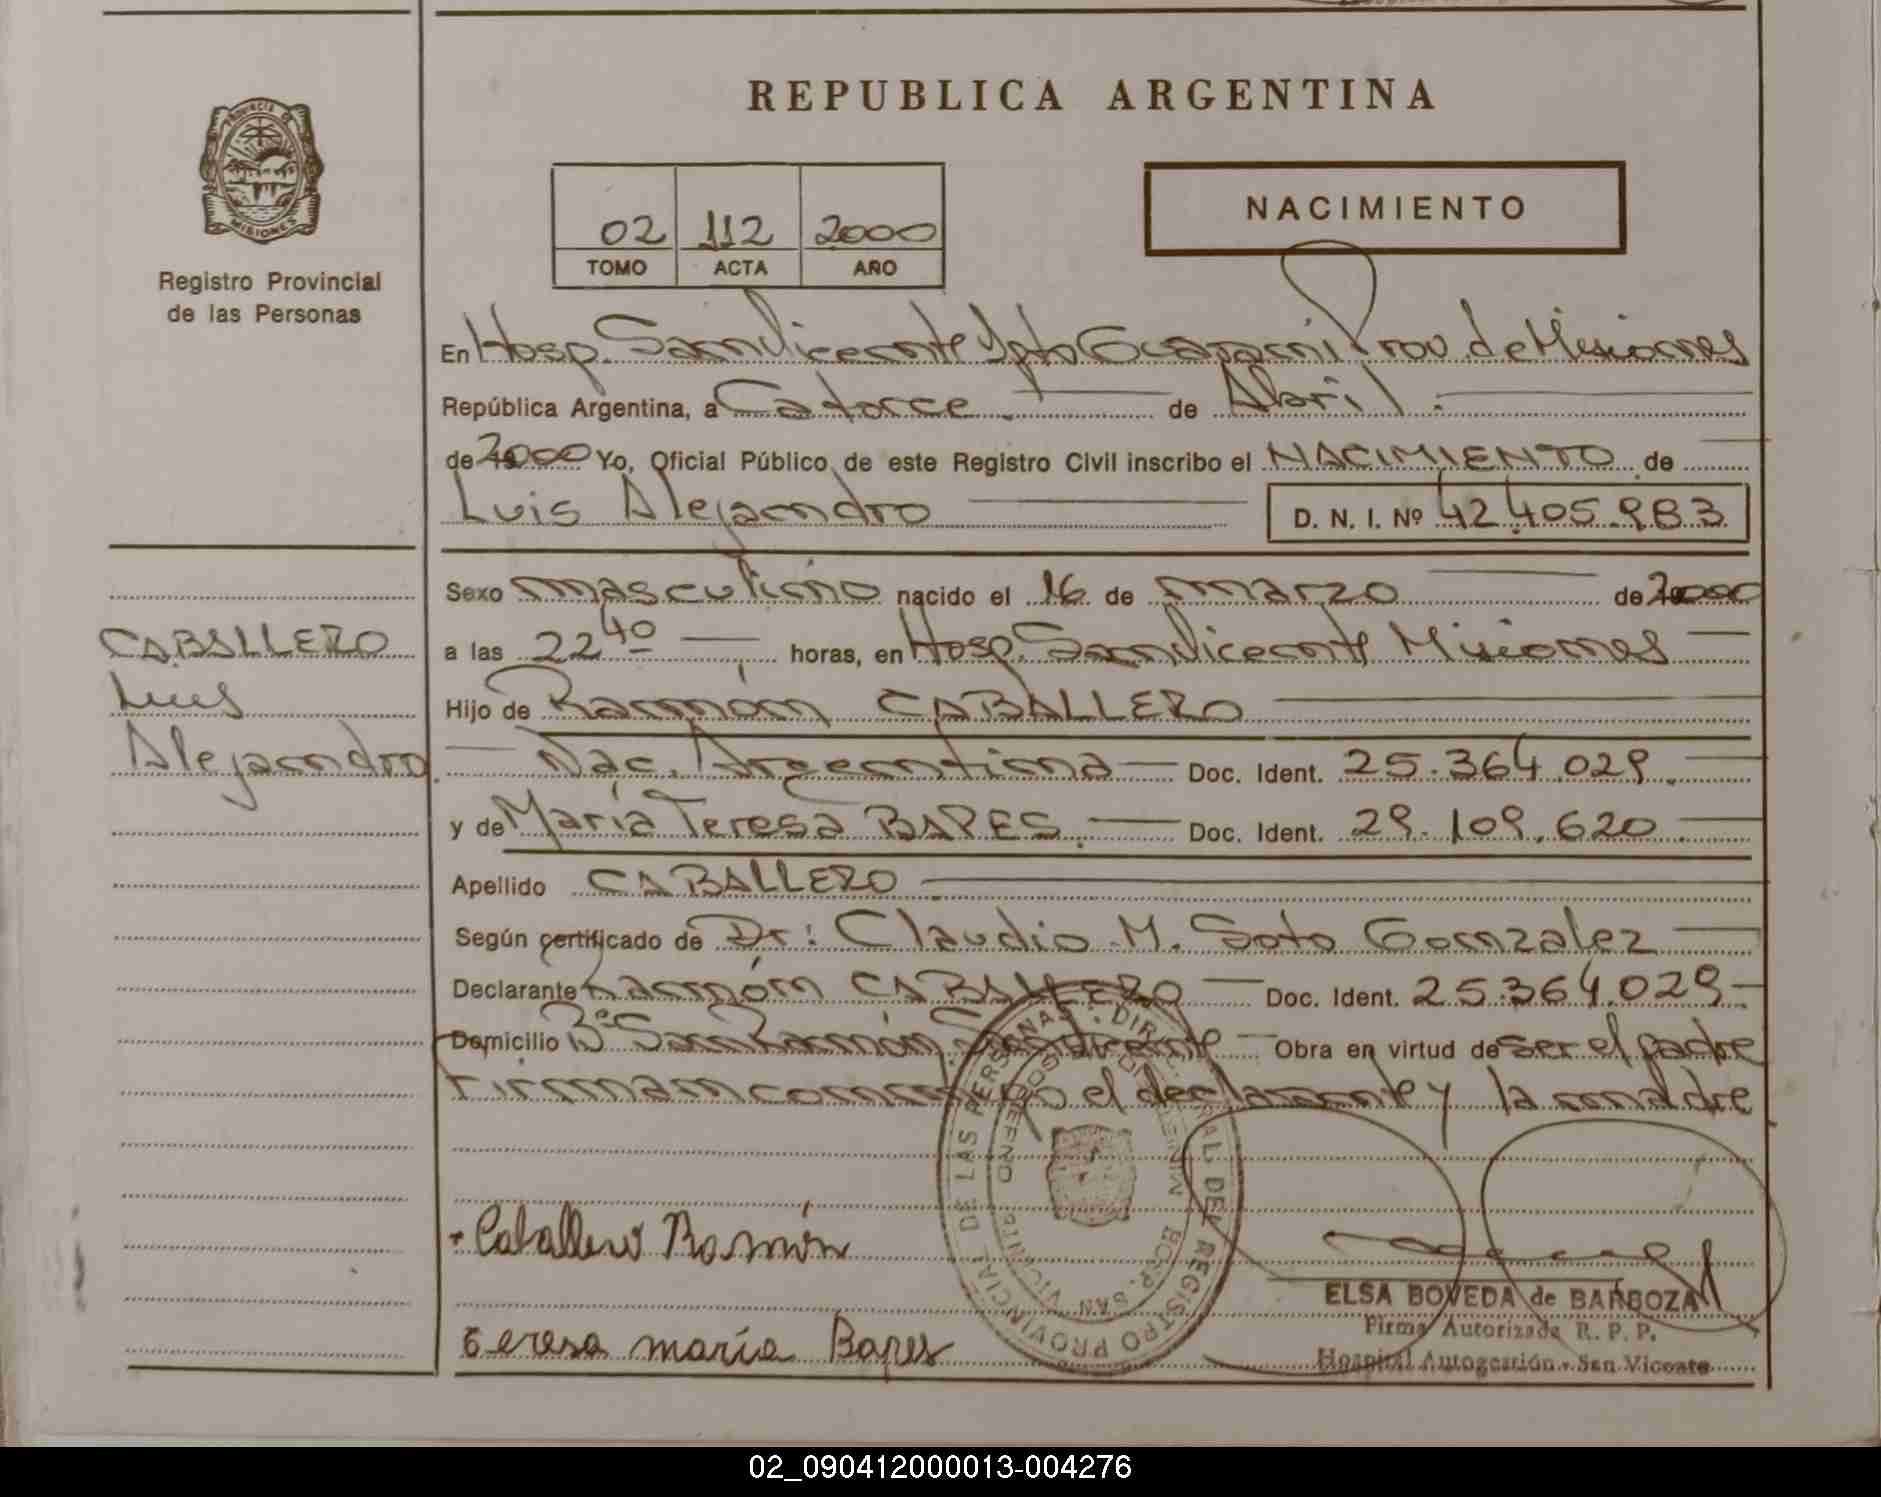 REPUBLICA ARGENTINA
PROVINCIA DE
MISIONES
Registro Provincial
de las Personas
02 112 2000
TOMO ACTA AÑO
NACIMIENTO
En Hosp. San Vicente Dpto Guaraní Prov. de Misiones
República Argentina, a Catorce de Abril
de 2000 Yo, Oficial Público de este Registro Civil inscribo el NACIMIENTO de
Luis Alejandro D. N. I. Nº 42.405.983
Sexo masculino nacido el 16 de marzo de 2000
CABALLERO
Luis
Alejandro
a las 22 40 horas, en Hosp. San Vicente Misiones
Hijo de Ramón CABALLERO
Nac. Argentina Doc. Ident. 25.364.029
y de María Teresa BAPES Doc. Ident. 29.109.620
Apellido CABALLERO
Según certificado de Dr: Claudio M. Soto Gonzalez
Declarante Ramón CABALLERO Doc. Ident. 25.364.029
Domicilio Bº San Ramón San Vicente Obra en virtud de ser el padre
Firman conmigo el declarante y la madre
DIREC. GRAL. DEL REGISTRO PROVINCIAL DE LAS PERSONAS
HOSP. SAN VICENTE
Caballero Ramón
teresa maría Bapes
ELSA BOVEDA de BARBOZA
Firma Autorizada R. P. P.
Hospital Autogestión - San Vicente
02_090412000013-004276